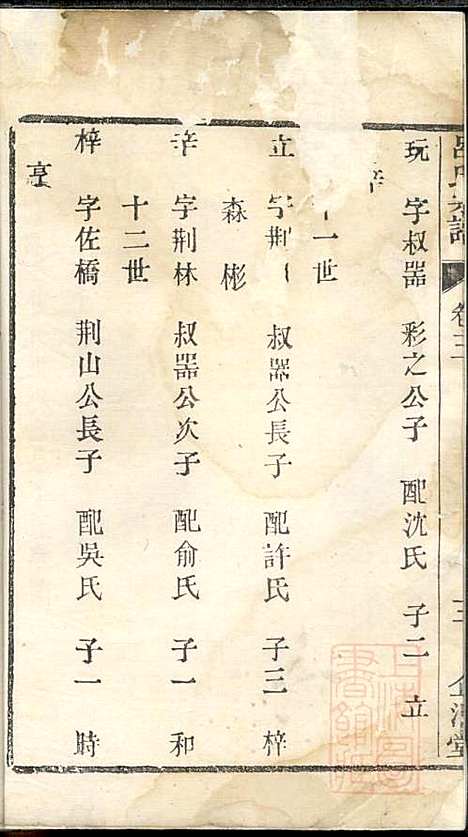 呂氏宗譜
卷三
三
玩 字叔器 彩之公子 配沈氏 子二 立
辛
十一世
立 字荆山 叔器公長子 配許氏 子三 梓
森 彬
辛 字荆林 叔器公次子 配俞氏 子一 和
十二世
梓 字佐橋 荆山公長子 配吳氏 子一 時
亨